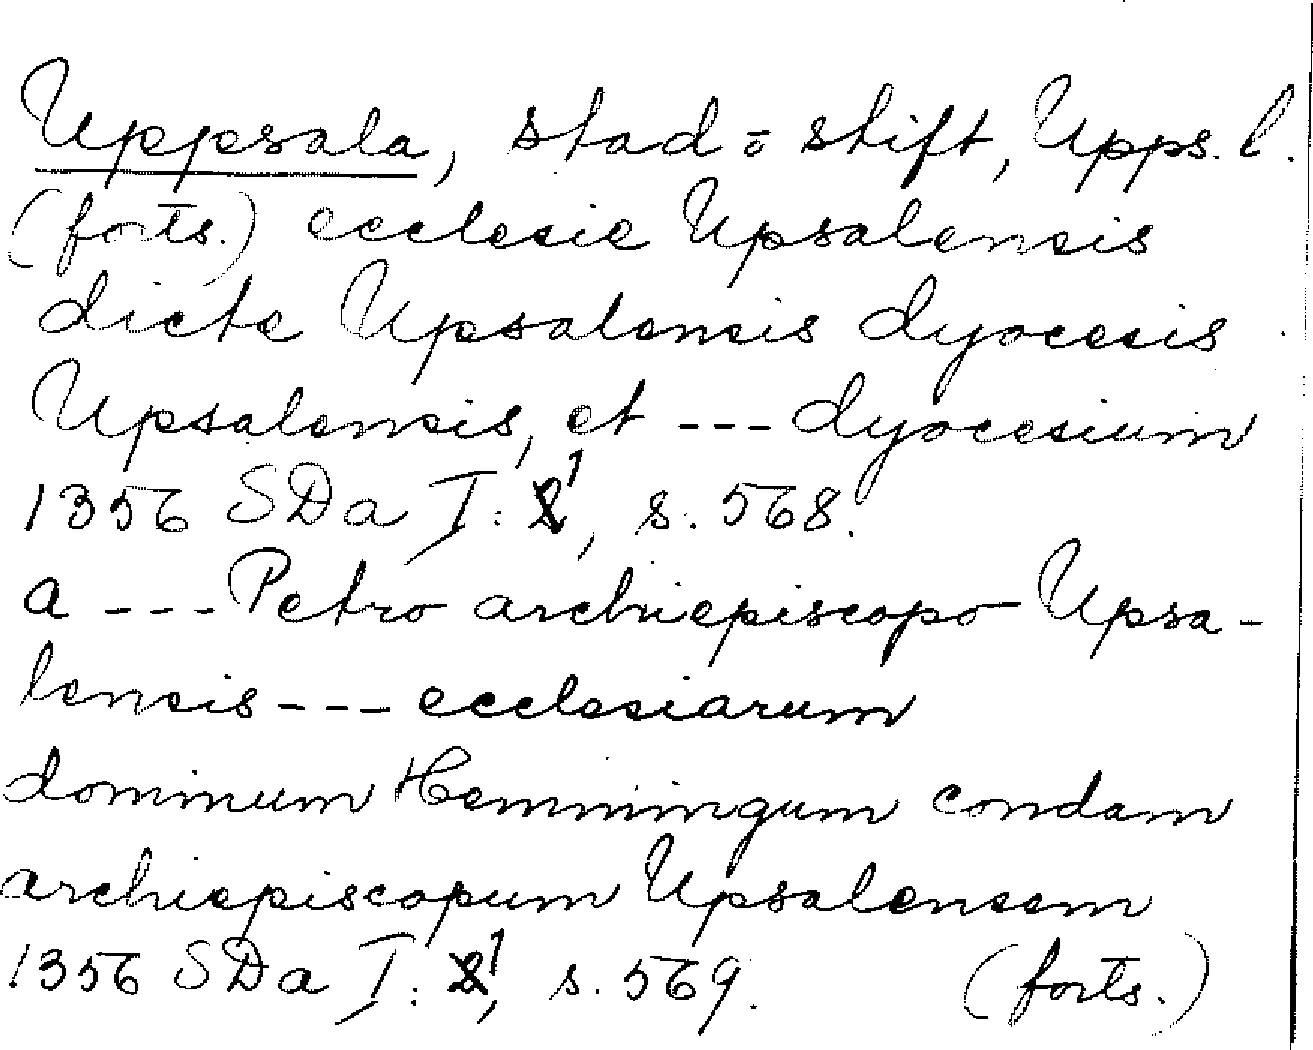 Uppsala, stad = stift, Upps. l.
(forts.) ecclesie Upsalensis
dicte Upsalensis dyocesis
Upsalensis, et --- dyocesium
1356 SDa I: 1, s. 568.
a --- Petro archiepiscopo Upsa-
lensis --- ecclesiarum
dominum Hemmingum condam
archiepiscopum Upsalensem
1356 SDa I: 1, s. 569. (forts.)